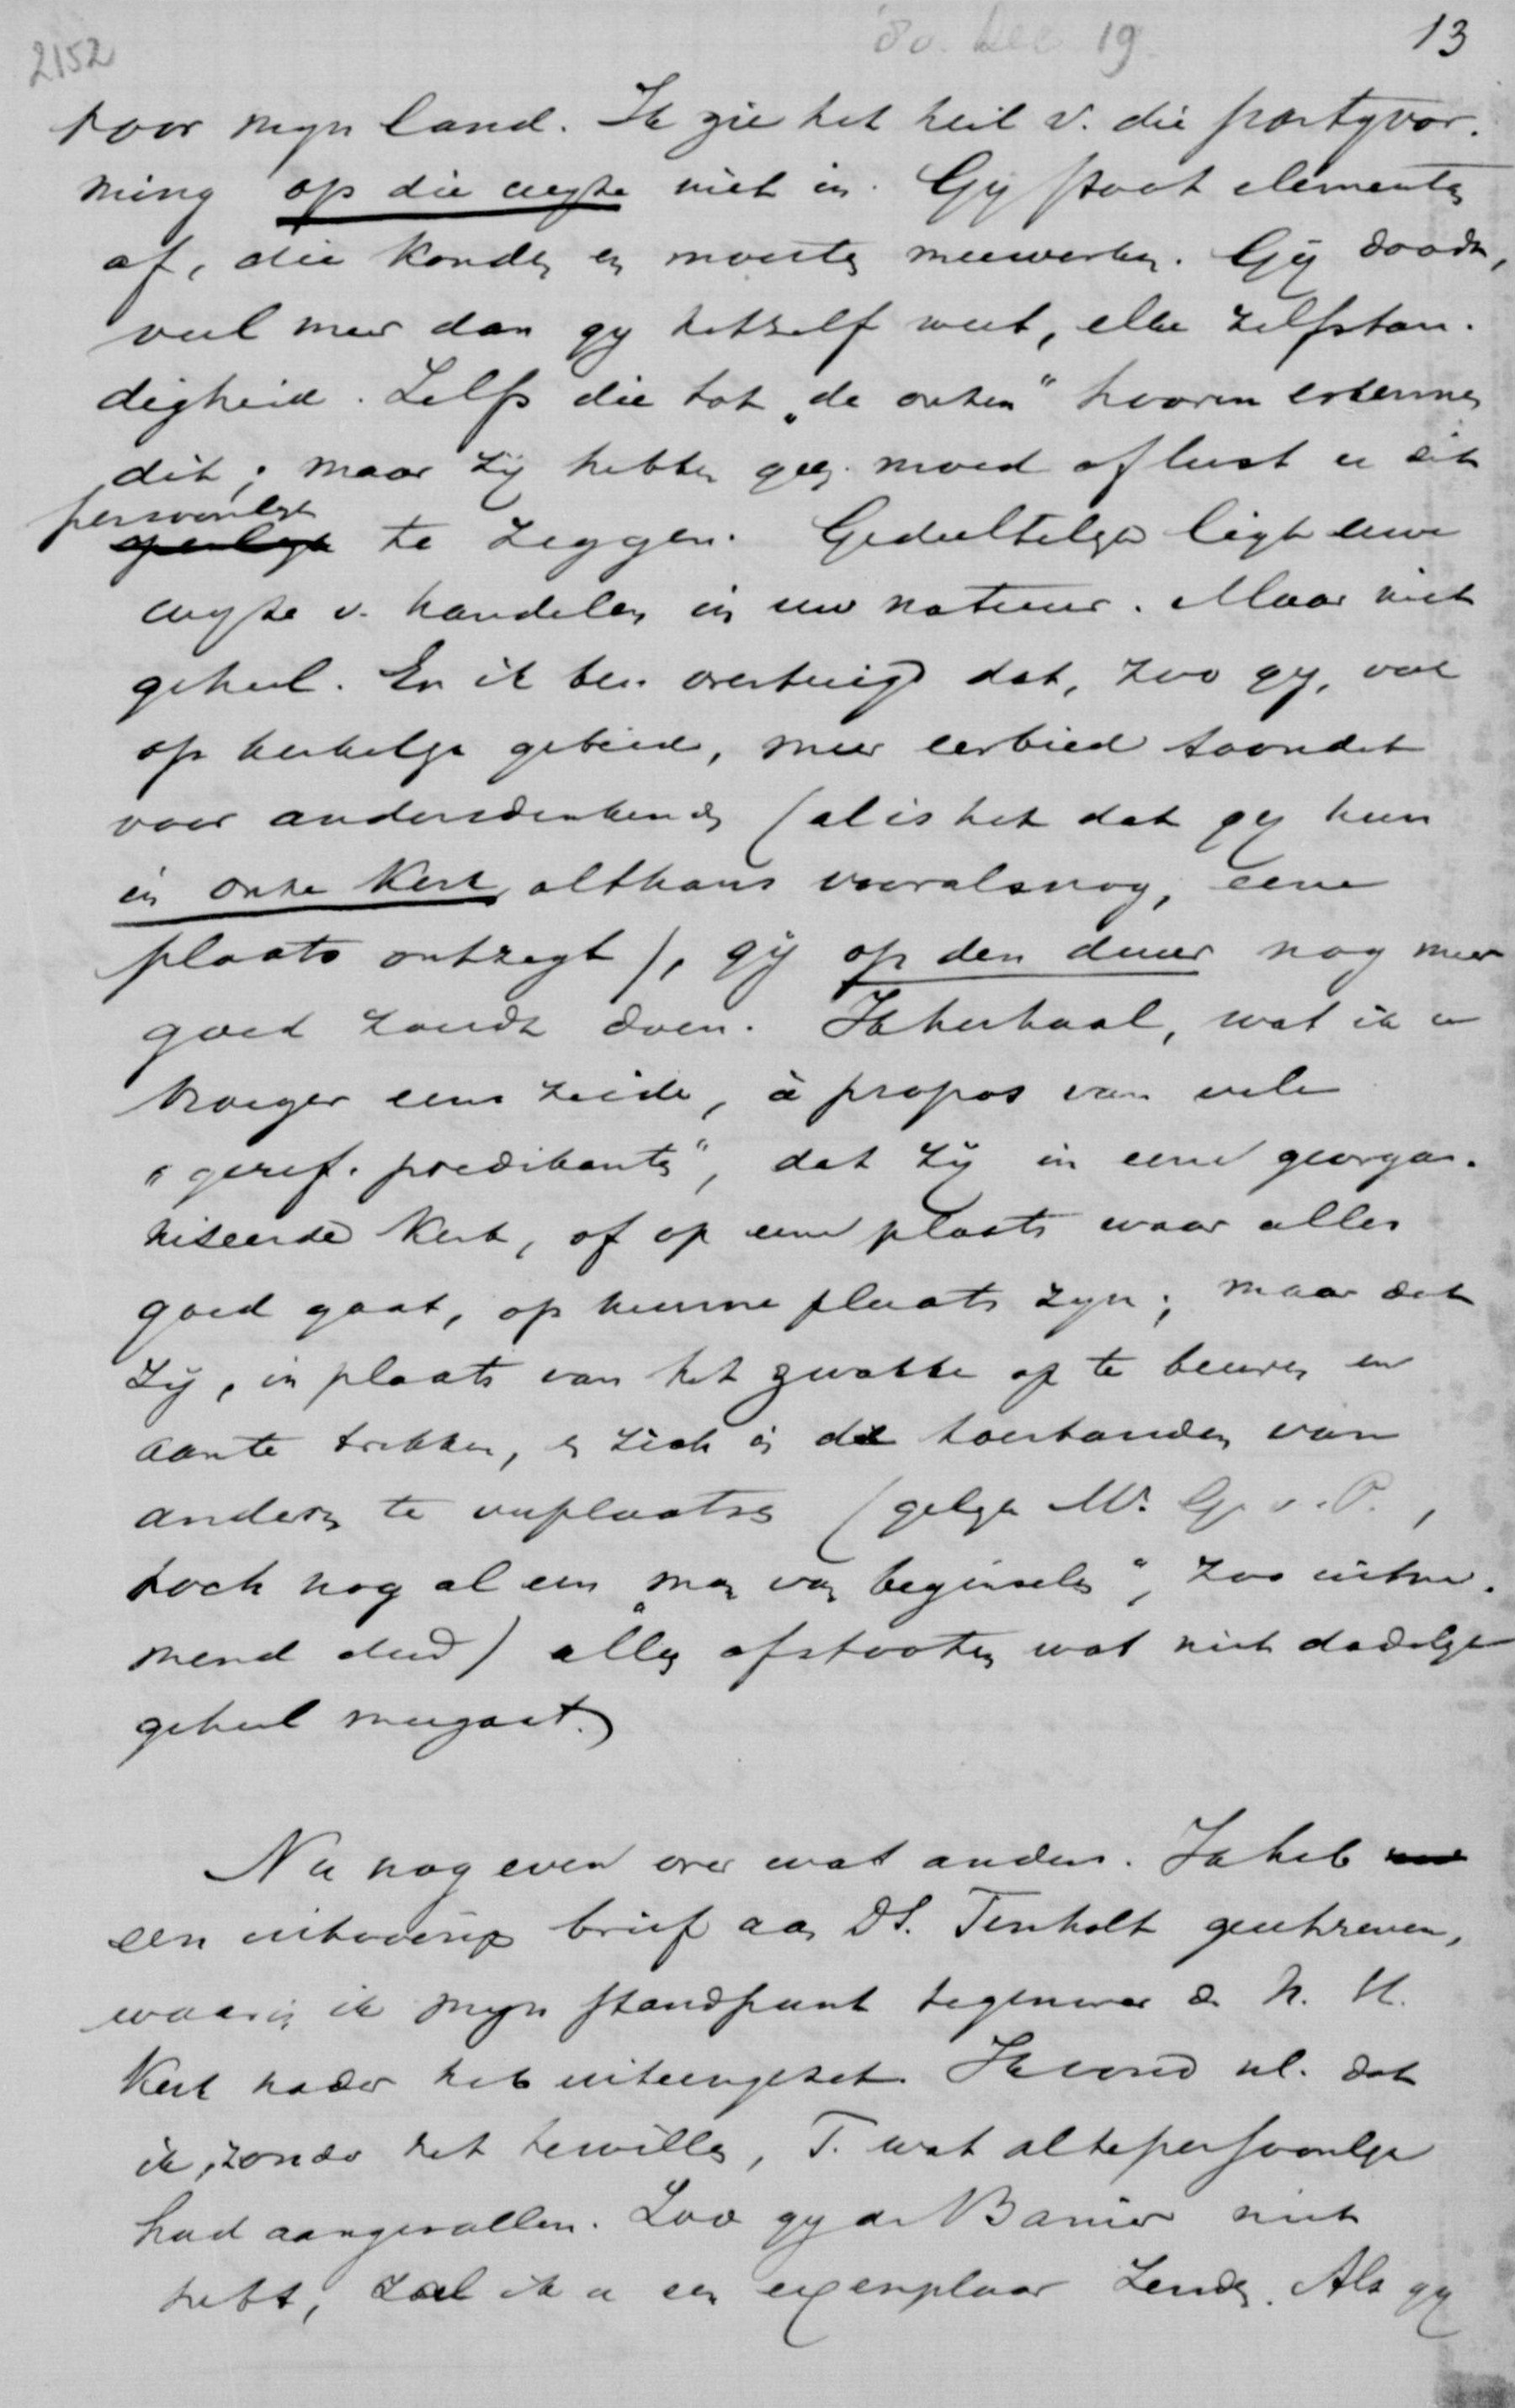 2152
'80. Dec 19
13
voor mijn land. Ik zie het heil v. die partyvor-
ming op die wyze niet in. Gij stoot elementen
af, die konden en moesten meewerken. Gij doodt,
veel meer dan gy hetzelf weet, elke zelfstan-
digheid. Zelfs die tot „de onzen" hooren erkennen
dit; maar zij hebben geen moed of lust u dit
persoonlijk
openlyk te zeggen. Gedeeltelyk ligt uwe
wyze v. handelen in uw natuur. Maar niet
geheel. En ik ben overtuigd dat, zoo gy, ook
op kerkelyk gebied, meer eerbied toondet
voor andersdenkenden (al is het dat gy hun
in onze Kerk, althans vooralsnog, eene
plaats ontzegt), gij op den duur nog meer
goed zoudt doen. Ik herhaal, wat ik u
vroeger eens zeide, à propos van vele
„geref. predikanten", dat zij in eene georga-
niseerde Kerk, of op eene plaats waar alles
goed gaat, op hunne plaats zyn; maar dat
zij, in plaats van het zwakke op te beuren en
aante trekken, en zich in de toestanden van
anderen te verplaatsen (gelyk Mr. G. v. P.,
toch nog al een „man van beginselen", zoo uitne-
mend deed) alles afstooten wat niet dadelyk
geheel meegaat.
Nu nog even over wat anders. Ik heb
een uitvoerig brief aan DS. Tenholt geschreven,
waarin ik myn standpunt tegenover de N. H.
Kerk nader heb uiteengezet. Ik vond nl. dat
ik, zonder het te willen, T. wat alte persoonlyk
had aangevallen. Zoo gy de Banier niet
hebt, zal ik u een exemplaar zenden. Als gy